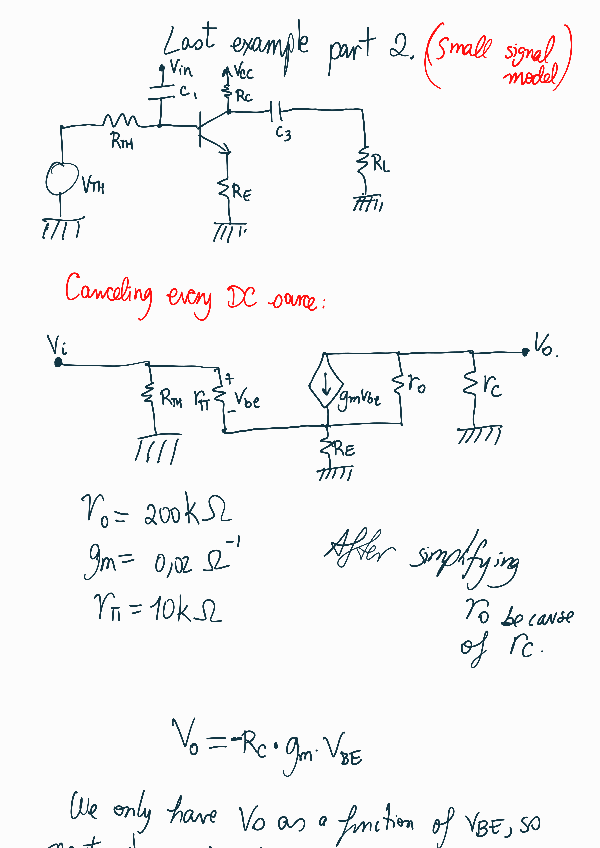 Last example part 2. (Small signal model)
Vin
Vcc
C1
Rc
RTH
C3
RL
VTH
RE
Canceling every DC source:
Vi
Vo.
RTH
rπ
+
-
Vbe
gmVbe
ro
rc
RE
ro = 200kΩ
gm = 0,02 Ω⁻¹
rπ = 10kΩ
After simplifying
ro because
of rc.
Vo = -Rc · gm · VBE
We only have Vo as a function of VBE, so